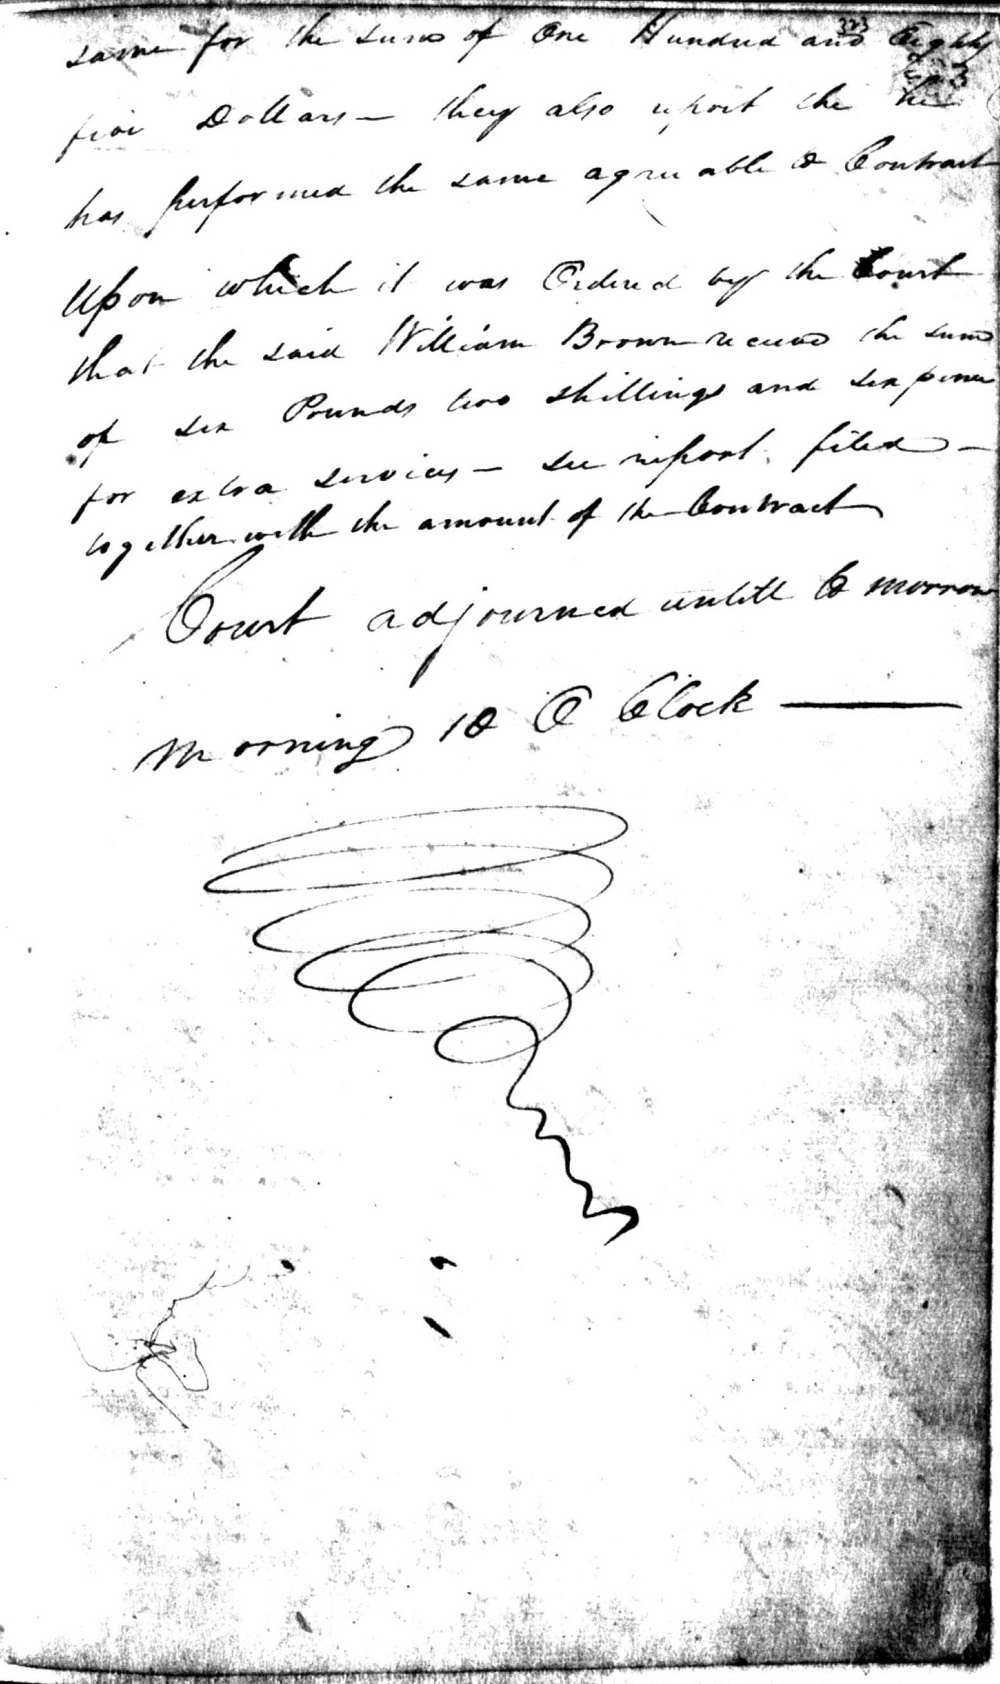 323
same for the sum of One Hundred and Eighty
five Dollars — they also report the he
has performed the same agreeable to Contract
Upon which it was Ordered by the Court
that the said William Brown receive the sum
of six Pounds two shillings and six pence
for extra services — see report filed —
together with the amount of the Contract
Court adjourned untill to morrow
morning 10 O Clock